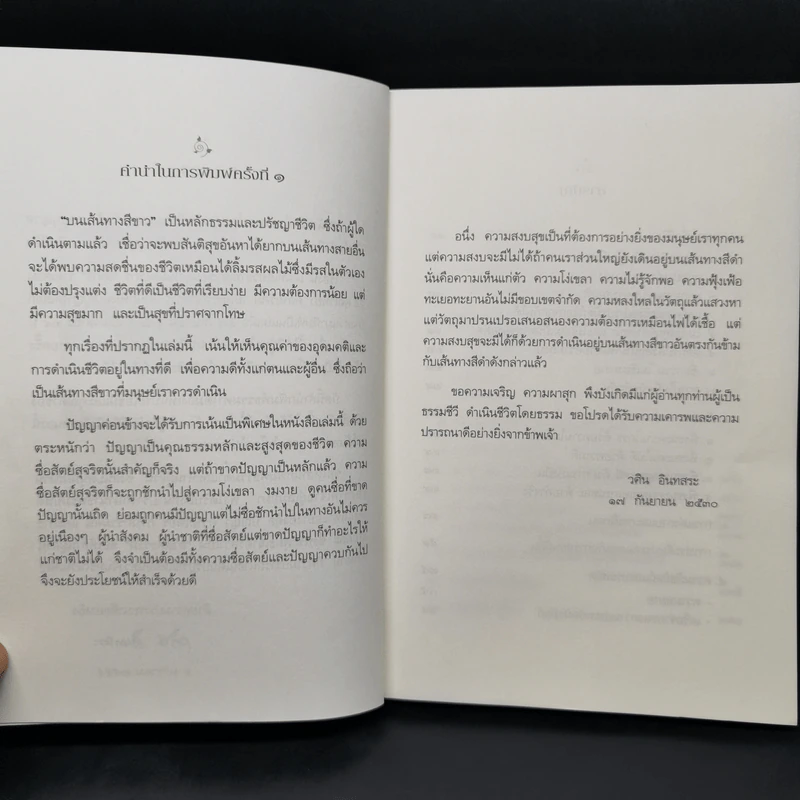 ๑
คำนำในการพิมพ์ครั้งที่ ๑
"บนเส้นทางสีขาว" เป็นหลักธรรมและปรัชญาชีวิต ซึ่งถ้าผู้ใด
ดำเนินตามแล้ว เชื่อว่าจะพบสันติสุขอันหาได้ยากบนเส้นทางสายอื่น
จะได้พบความสดชื่นของชีวิตเหมือนได้ลิ้มรสผลไม้ซึ่งมีรสในตัวเอง
ไม่ต้องปรุงแต่ง ชีวิตที่ดีเป็นชีวิตที่เรียบง่าย มีความต้องการน้อย แต่
มีความสุขมาก และเป็นสุขที่ปราศจากโทษ
ทุกเรื่องที่ปรากฏในเล่มนี้ เน้นให้เห็นคุณค่าของอุดมคติและ
การดำเนินชีวิตอยู่ในทางที่ดี เพื่อความดีทั้งแก่ตนและผู้อื่น ซึ่งถือว่า
เป็นเส้นทางสีขาวที่มนุษย์เราควรดำเนิน
ปัญญาค่อนข้างจะได้รับการเน้นเป็นพิเศษในหนังสือเล่มนี้ ด้วย
ตระหนักว่า ปัญญาเป็นคุณธรรมหลักและสูงสุดของชีวิต ความ
ซื่อสัตย์สุจริตนั้นสำคัญก็จริง แต่ถ้าขาดปัญญาเป็นหลักแล้ว ความ
ซื่อสัตย์สุจริตก็จะถูกชักนำไปสู่ความโง่เขลา งมงาย ดูคนซื่อที่ขาด
ปัญญานั้นเถิด ย่อมถูกคนมีปัญญาแต่ไม่ซื่อชักนำไปในทางอันไม่ควร
อยู่เนืองๆ ผู้นำสังคม ผู้นำชาติที่ซื่อสัตย์แต่ขาดปัญญาก็ทำอะไรให้
แก่ชาติไม่ได้ จึงจำเป็นต้องมีทั้งความซื่อสัตย์และปัญญาควบกันไป
จึงจะยังประโยชน์ให้สำเร็จด้วยดี
อนึ่ง ความสงบสุขเป็นที่ต้องการอย่างยิ่งของมนุษย์เราทุกคน
แต่ความสงบจะมีไม่ได้ถ้าคนเราส่วนใหญ่ยังเดินอยู่บนเส้นทางสีดำ
นั่นคือความเห็นแก่ตัว ความโง่เขลา ความไม่รู้จักพอ ความฟุ้งเฟ้อ
ทะเยอทะยานอันไม่มีขอบเขตจำกัด ความหลงใหลในวัตถุแล้วแสวงหา
แต่วัตถุมาปรนเปรอเสนอสนองความต้องการเหมือนไฟได้เชื้อ แต่
ความสงบสุขจะมีได้ก็ด้วยการดำเนินอยู่บนเส้นทางสีขาวอันตรงกันข้าม
กับเส้นทางสีดำดังกล่าวแล้ว
ขอความเจริญ ความผาสุก พึงบังเกิดมีแก่ผู้อ่านทุกท่านผู้เป็น
ธรรมชีวี ดำเนินชีวิตโดยธรรม ขอโปรดได้รับความเคารพและความ
ปรารถนาดีอย่างยิ่งจากข้าพเจ้า
วศิน อินทสระ
๑๗ กันยายน ๒๕๓๐